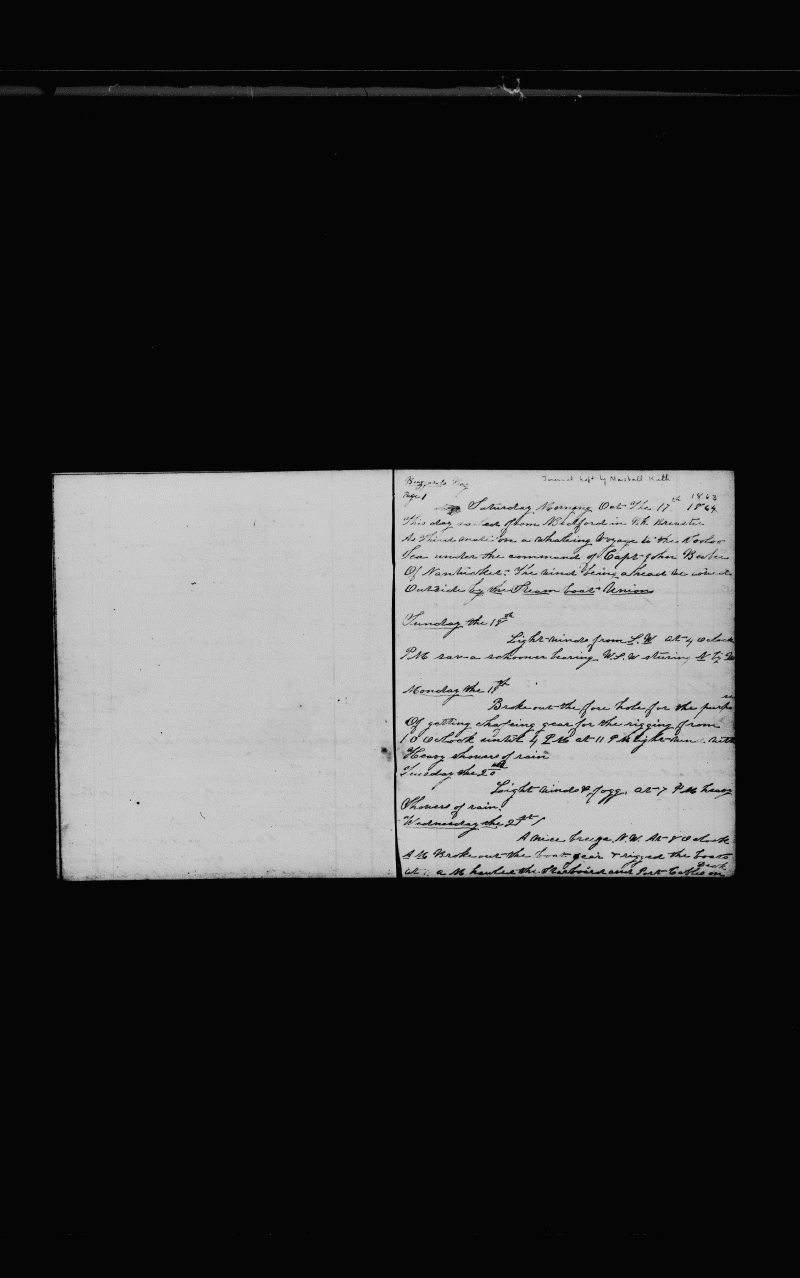 Buzzards Bay
Journal kept by Marshall Keith
Page 1
1863
Saturday Morning Oct The 17th 1864
This day sailed from N Bedford in Bk Brewster
As Third mate on a whaling Voyage to the
Sea under the command of Capt John
Of Nantucket. The wind being ahead we towed
Outside by the Steam boat Union
Sunday the 18th
Light winds from S.W at 4 oclock
PM saw a schooner bearing W.S.W stearing N by W
Monday the 19th
Broke out the fore hole for the purpose
Of getting chafeing gear for the rigging from
10 Oclock until 4 PM at 11 PM lightnin with
Heavy showers of rain
Tuesday the 20th
Light winds & fogg. at 7 PM heavy
Showers of rain.
Wednesday the 21st
A nice breeze N.W. At 8 Oclock
A M Broke out the boat gear & rigged the boats
at A M hauled the Starboard and Port Cables on
Deck